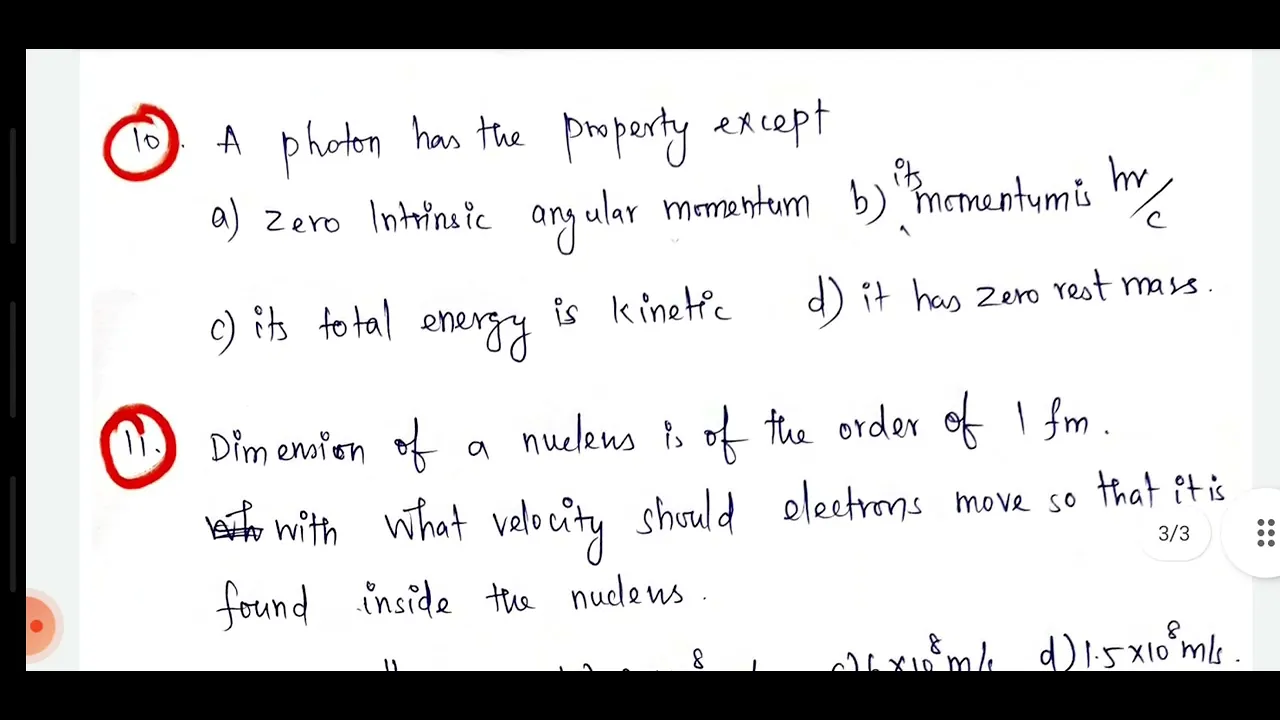 10. A photon has the property except
a) zero Intrinsic angular momentum b) its momentum is hν/c
c) its total energy is kinetic d) it has zero rest mass.
11. Dimension of a nucleus is of the order of 1 fm.
with what velocity should electrons move so that it is
3/3
found inside the nucleus.
8 d) 1.5×10⁸ m/s.